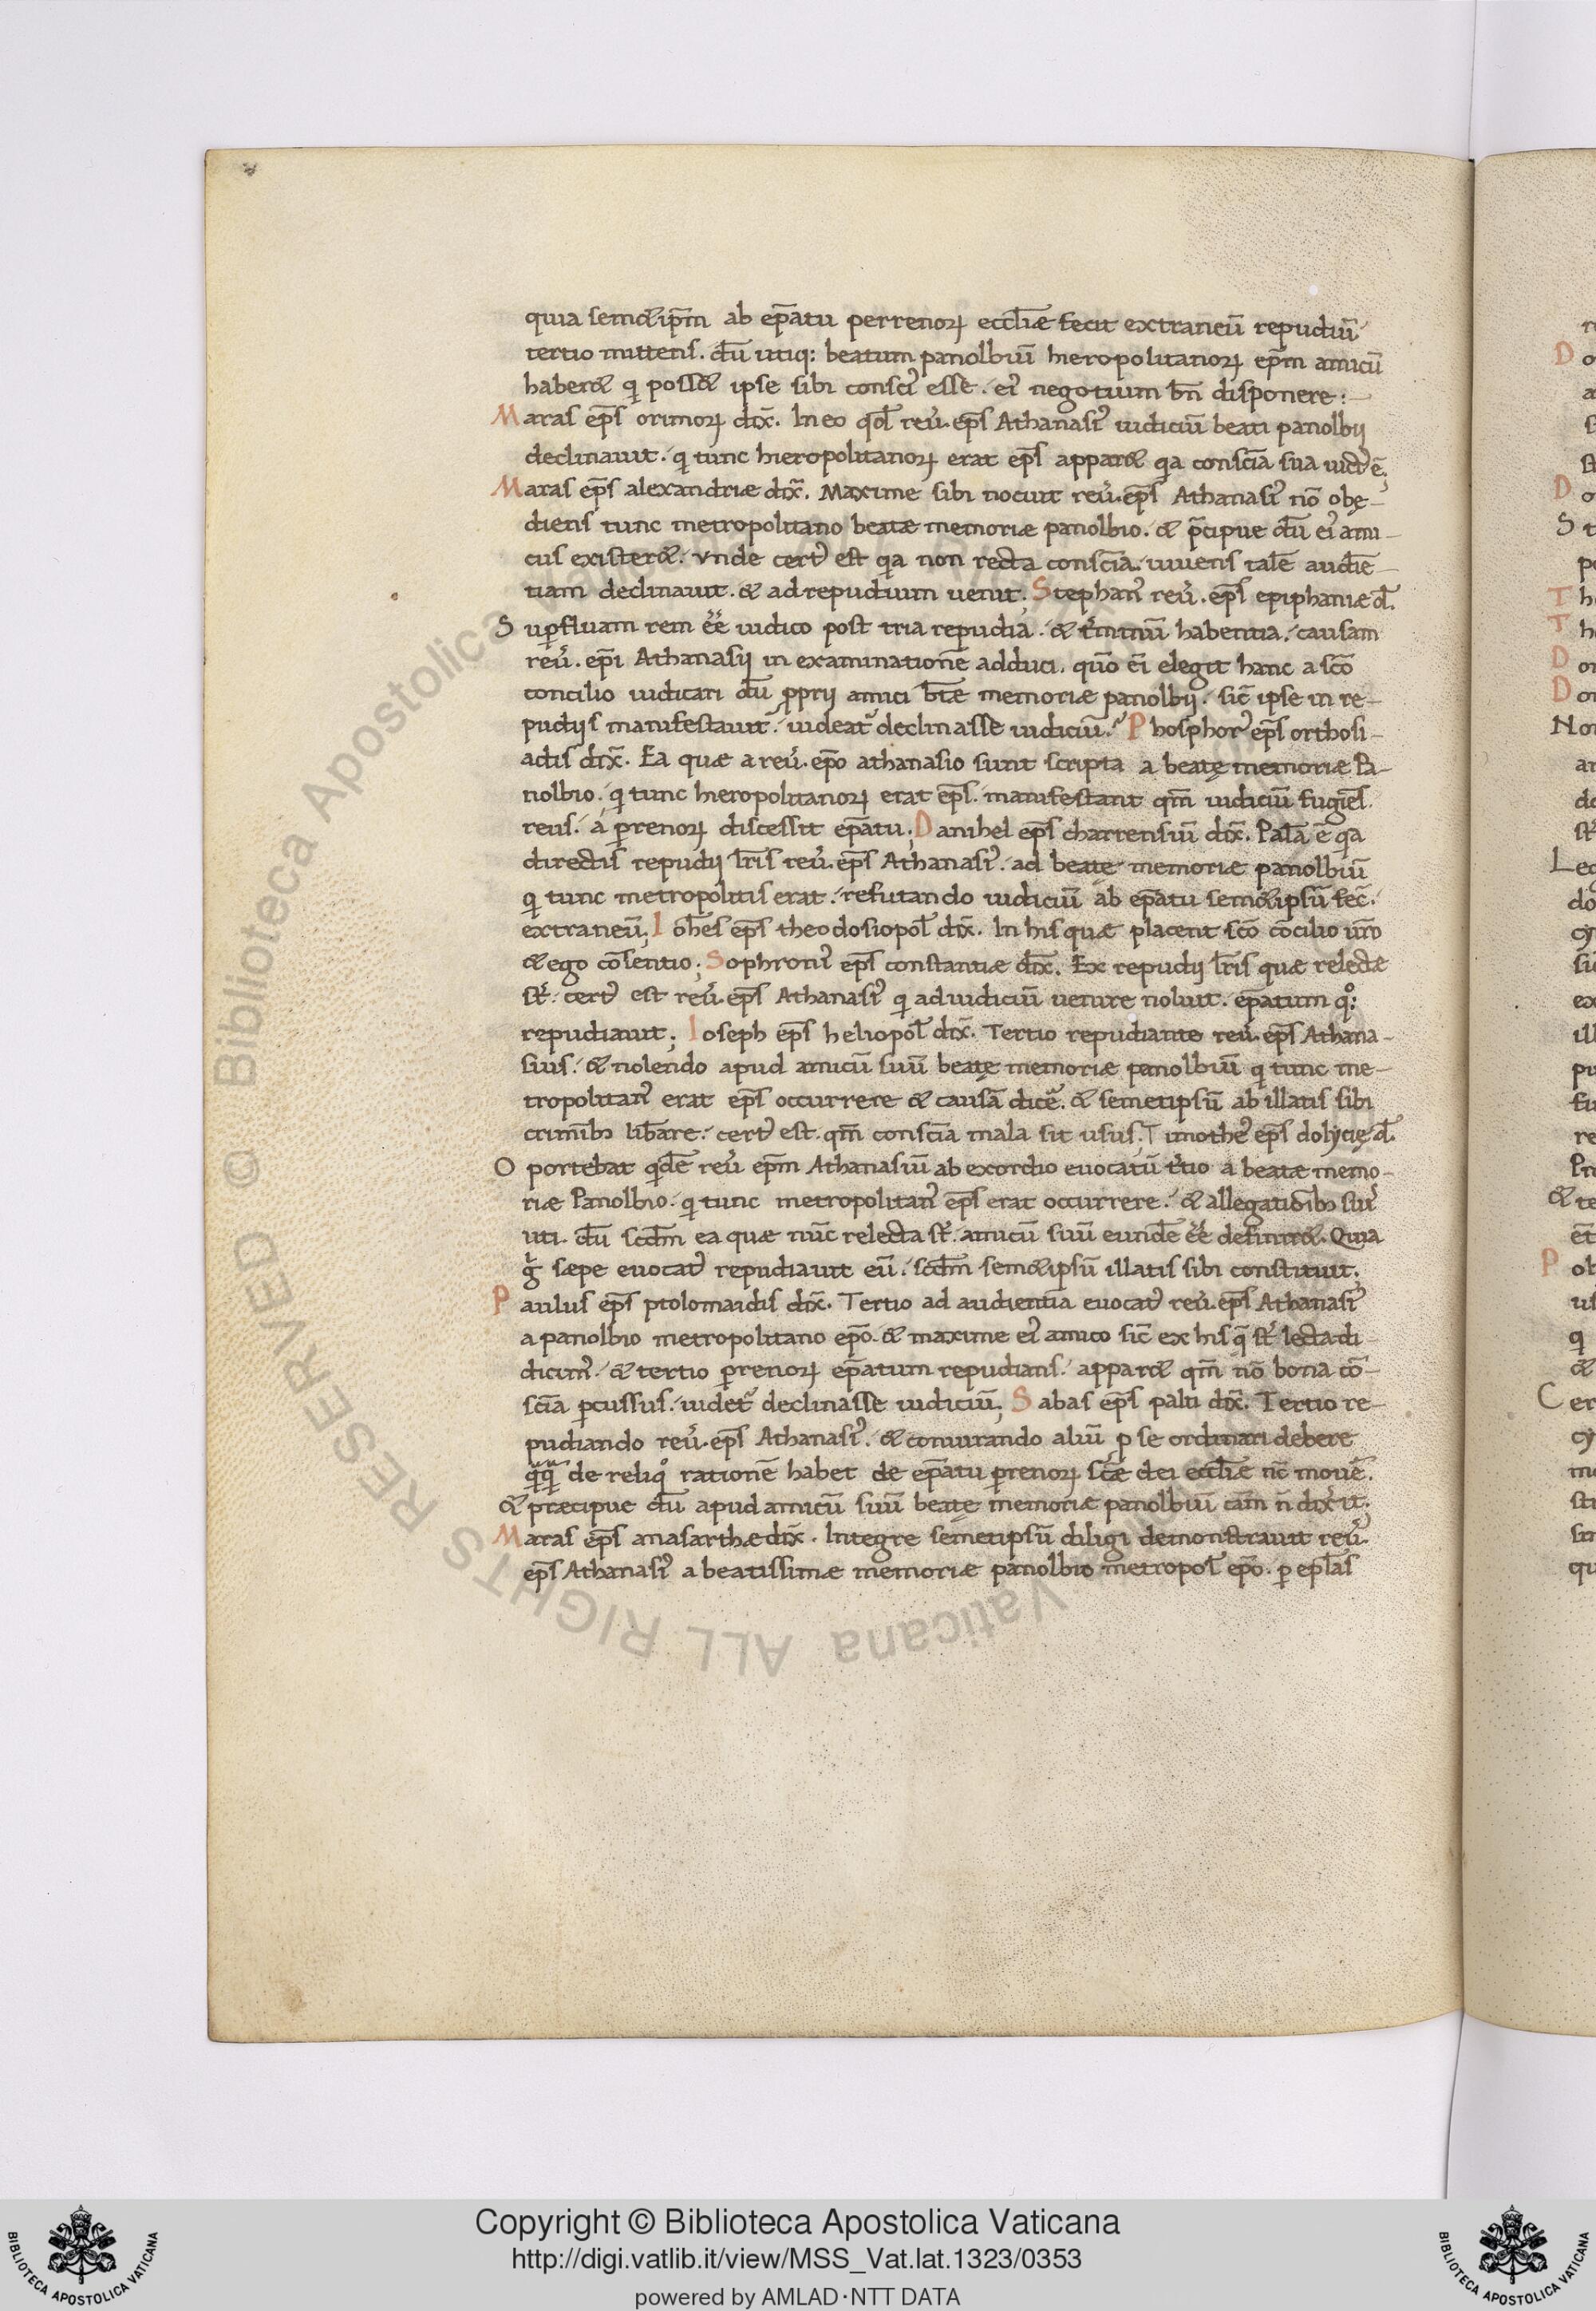 quia semetip̄m ab ep̄atu perrenoꝝ eccl̄iæ fecit extraneū repudiū
tertio mittens. dū utiq: beatum panolbiū hieropolitanoꝝ ep̄m amicū
haberet qi posset ipse sibi consci᾿ esse. ei᾿ negotium bn̄ disponere:—
Maras ep̄s orimoꝝ dix̄. In eo qd̄ reu᾿. ep̄s Athanasi᾿ iudiciū beati panolbij
declinauit. qi tunc hieropolitanoꝝ erat ep̄s apparet qa consc̄ia sua uict᾿ ē;
Maras ep̄s alexandriæ dix̄. Maxime sibi nocuit reu᾿. ep̄s Athanasi᾿ nō obę-
diens tunc metropolitano beatæ memoriæ panolbio. & p̄cipue dū ei᾿ ami-
cus existeret. vnde cert᾿ est qa non recta consc̄ia uiuens talē audiē-
tiam declinauit. & ad repudium uenit; Stephan᾿ reu᾿. ep̄s epiphaniæ d̄.
Sup̱fluam rem ēē iudico post tria repudia. & t᾿minū habentia. causam
reu᾿. ep̄i Athanasij in examinationē adduci. quō ei᾿ elegit hanc a sc̄o
concilio iudicari dū ꝓprij amici btǣ memoriæ panolbij. sic̄ ipse in re-
pudijs manifestauit. uideat᾿ declinasse iudiciū. Phosphor᾿ ep̄s orthosi-
adis dix̄. Ea quæ a reu᾿. ep̄o athanasio sunt scripta a beatę memoriæ Pa-
nolbio. qi tunc hieropolitanoꝝ erat ep̄s. manifestant qm̄ iudiciū fugiēs
reus. a ꝑrenoꝝ discessit ep̄atu; Danihel ep̄s charrensiū dix̄. Palā ē qa
directis repudij lr̄is reu᾿. ep̄s Athanasi᾿. ad beatę memoriæ panolbiū
qi tunc metropolitis erat. refutando iudiciū ab ep̄atu semetipsū fec̄.
extraneū; Ioh̄es ep̄s theodosiopol̄ dix̄. In his quæ placent sc̄o cōcilio ur̄o
& ego cōsentio; Sophroni᾿ ep̄s constantiæ dix̄. Ex repudij lr̄is quæ relectæ
st᾿. cert᾿ est reu᾿. ep̄s Athanasi᾿ qi ad iudiciū uenire noluit. ep̄atum qo:
repudiauit; Ioseph ep̄s heliopol̄ dix̄. Tertio repudiante reu᾿. ep̄s Athana-
sius. & nolendo apud amicū suū beatę memoriæ panolbiū qi tunc me-
tropolitan᾿ erat ep̄s occurrere & causā dicē. & semetipsū ab illatis sibi
criminib᾿ lib̄are. cert᾿ est qm̄ consc̄ia mala sit usus. Timothe᾿ ep̄s dolycię d̄.
Oportebat qidē reu᾿ ep̄m Athanasiū ab exordio euocatū t᾿tio a beatæ memo-
riæ Panolbio. qi tunc metropolitan᾿ ep̄s erat occurrere. & allegationib᾿ sui᾿
uti. dū scd̄m ea quæ nūc relecta st᾿. amicū suū eundē ēē definiret. Quia
g᾿ sæpe euocat᾿ repudiauit eū. scd̄m semetipsū illatis sibi constituit;
Paulus ep̄s ptolomaidis dix̄. Tertio ad audientia euocat᾿ reu᾿. ep̄s Athanasi᾿
a panolbio metropolitano ep̄o. & maxime ei᾿ amico sic̄ ex his q̄ st᾿ lecta di
dicim᾿. & tertio ꝑrenoꝝ ep̄atum repudians. apparet qm̄ nō bona cō-
sc̄ia ꝑcussus. uidet᾿ declinasse iudiciū; Sabas ep̄s palti dix̄. Tertio re-
pudiando reu᾿. ep̄s Athanasi᾿. & coniurando aliū ꝓ se ordinari debere
q̄q̄ de reliqo rationē habet de ep̄atu ꝑrenoꝝ sc̄æ dei eccl̄iæ nc̄ mouē.
& præcipue dū apud amicū suū beatę memoriæ panolbiū cām n̄ dix̄it;
Maras ep̄s anasarthæ dix̄. Integre semetipsū diligi demonstrauit reu᾿.
ep̄s Athanasi᾿ a beatissimæ memoriæ panolbio metropol̄ ep̄o. ꝑ epl̄as
Copyright © Biblioteca Apostolica Vaticana
http://digi.vatlib.it/view/MSS_Vat.lat.1323/0353
powered by AMLAD·NTT DATA